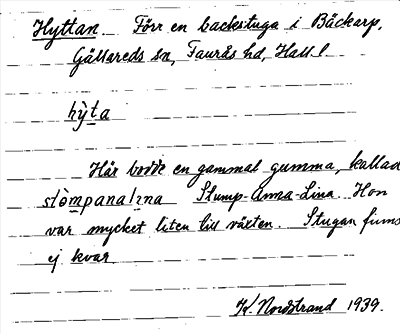 Hyttan. Förr en backstuga i Bäckarp,
Gällareds sn, Faurås hd, Hall. l.
hỳta
Här bodde en gammal gumma, kallad
Stump-Anna-Lina. Hon
var mycket liten till växten. Stugan finns
ej kvar
Nordstrand 1939.